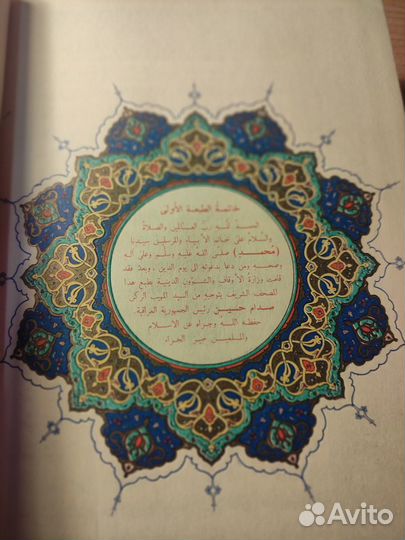 خاتمة الطبعة الأولى
الحمد لله رب العالمين والصلاة
والسلام على خاتم الأنبياء والمرسلين سيدنا
(محمد) صلى الله عليه وسلم وعلى آله
وصحبه ومن دعا بدعوته إلى يوم الدين . وبعد فقد
قامت وزارة الأوقاف والشؤون الدينية بطبع هذا
المصحف الشريف بتوجيه من السيد المهيب الركن
صدام حسين رئيس الجمهورية العراقية
حفظه الله وجزاه عن الاسلام
والمسلمين خير الجزاء
Avito